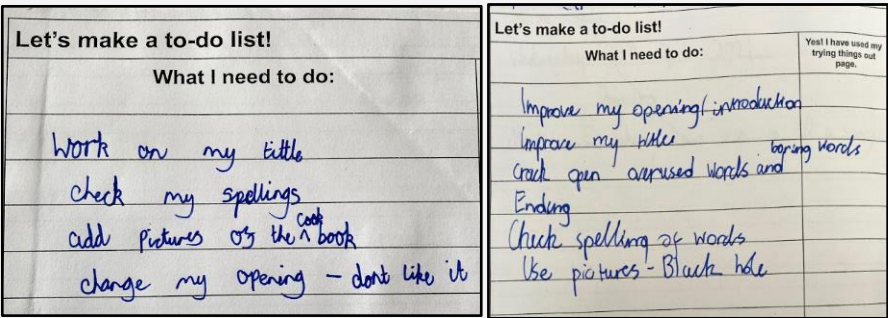 Let's make a to-do list!
What I need to do:
Work on my tittle
check my spellings
add pictures of the ^cook book
change my opening - dont like it
Let's make a to-do list!
What I need to do:
Yes! I have used my
trying things out
page.
Improve my opening/introduction
Improve my title
Crack open overused words and boring words
Ending
Check spelling of words
Use pictures - Black hole